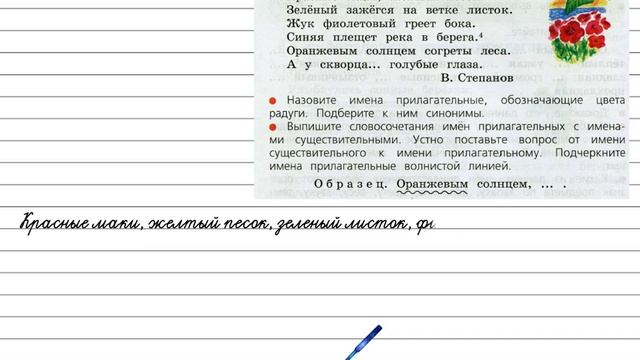 Зелёный зажёгся на ветке листок.
Жук фиолетовый греет бока.
Синяя плещет река в берега.⁴
Оранжевым солнцем согреты леса.
А у скворца... голубые глаза.
В. Степанов
● Назовите имена прилагательные, обозначающие цвета
радуги. Подберите к ним синонимы.
● Выпишите словосочетания имён прилагательных с имена-
ми существительными. Устно поставьте вопрос от имени
существительного к имени прилагательному. Подчеркните
имена прилагательные волнистой линией.
Образец. Оранжевым солнцем, ... .
Красные маки, желтый песок, зеленый листок, фи